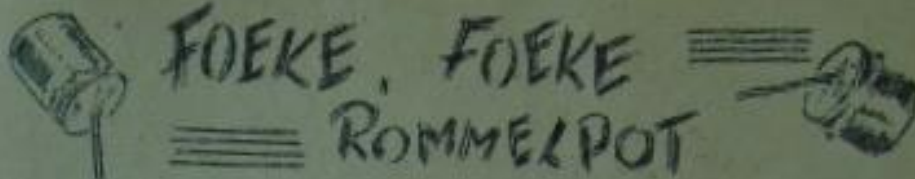 FOEKE, FOEKE
ROMMELPOT